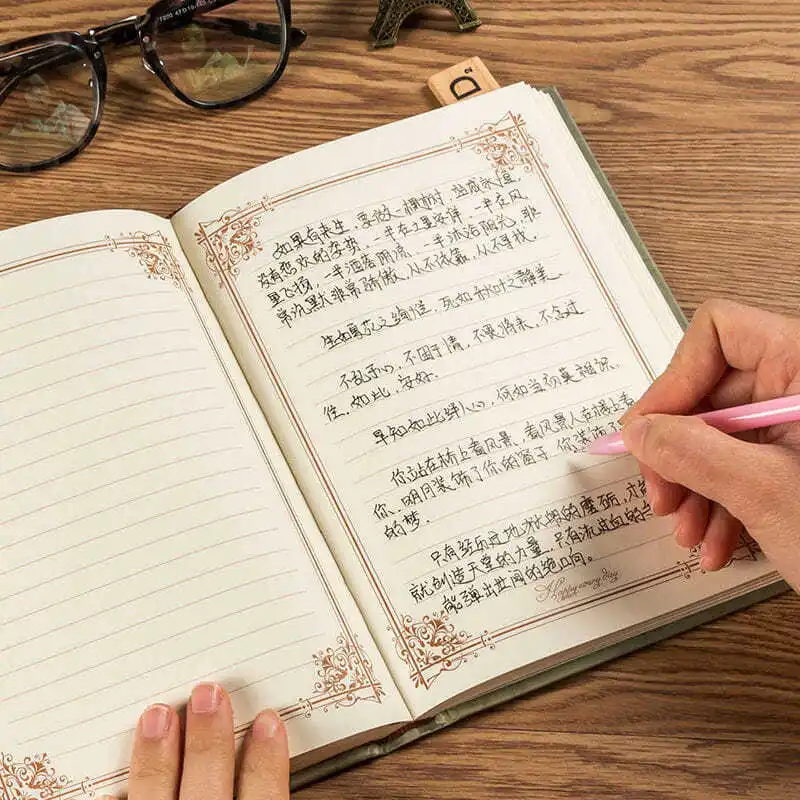 D2
如果有来生，要做一棵树，站成永恒，
没有悲欢的姿势。一半在土里安详，一半在风
里飞扬，一半洒落阴凉，一半沐浴阳光，非
常沉默非常骄傲，从不依靠，从不寻找
生如夏花之绚烂，死如秋叶之静美。
不乱于心，不困于情，不畏将来，不念过
往，如此，安好。
早知如此绊人心，何如当初莫相识。
你站在桥上看风景，看风景人在楼上看
你，明月装饰了你的窗子，你装饰了
的梦。
只有经历过地狱般的磨砺，才能
就创造天堂的力量，只有流过血的
能弹出世间的绝响。
Happy every day